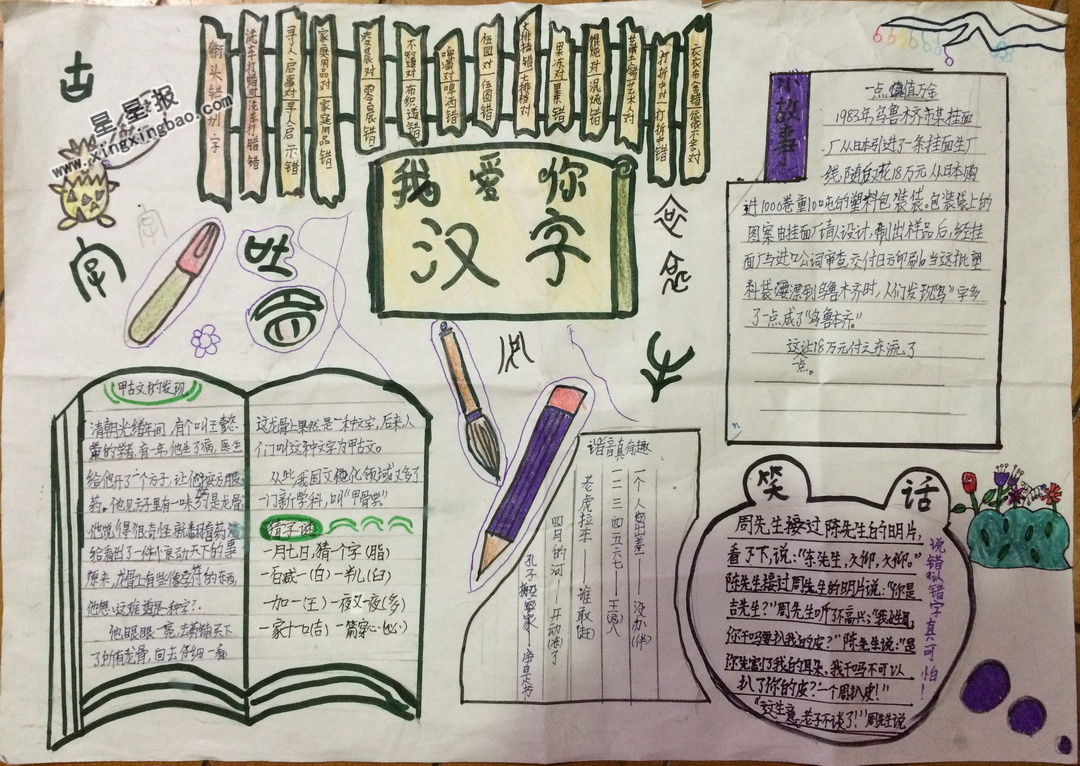 星星报
www.xingxingbao.com
古
字
街头错别字
洗车打蜡对洗车打腊错
寻人启事对寻人启示错
家庭用品对家庭用品错
零食展对零食展错
不知道对布织道错
啤酒对啤洒错
伍圆对伍圆错
大排档错大排档对
果冻对果素错
馄饨对混炖错
艺术人错
打折中对打折中错
我爱你
汉字
小故事
一点值万金
1983年乌鲁木齐市某挂面
厂从日本引进了一条挂面生产
线,随后又花18万元从日本购
进1000卷重10吨的塑料包装袋。包装袋上的
图案由挂面厂请人设计,制出样品后,经挂
面厂与进口公司审查,交付日方印刷。当这批塑
料袋漂到乌鲁木齐时,人们发现"乌"字多
了一点,成了"鸟鲁木齐"。
这让18万元付之东流了
点。
甲古文的发现
清朝光绪年间,有个叫王懿
荣的学者,有一年,他生了病,医生
给他开了个方子,让他按方服
药。他见方子里有一味药是龙骨
他觉得很奇怪就翻看药渣
给看出了一件惊动天下的事
原来,龙骨上有些像字符的东西,
他想:这难道是一种字?
他眼眼一亮,去药铺买下
了所有龙骨,回去仔细一看
这龙骨上果然是一种文字,后来人
们叫这种文字为甲古文。
从此我国文化领域又多了
一门新学科,叫"甲骨学"
猜字谜
一月七日,猜一个字(脂)
一百减一(白)一半儿(臼)
一加一(王)一夜又一夜(多)
一家十口(吉)一箭穿心(必)
谐音真有趣
一个人出差——没办(伴)
一二三四五六七——王(忘)八
老虎拉车——谁敢(赶)
四月的河——开动(冻)了
孔子搬家——净是书
笑话
周先生接过陈先生的明片,
看了下,说:"东先生,久仰,久仰。"
陈先生接过周先生的明片说:"你是
吉先生?"周先生听了不高兴:"我姓周
你干吗要扒我的皮?"陈先生说:"是
你先割了我的耳朵,我干吗不可以
扒了你的皮?一个周扒皮!"
"这生意,老子不谈了!"周先生说
说错认错字真可怕!